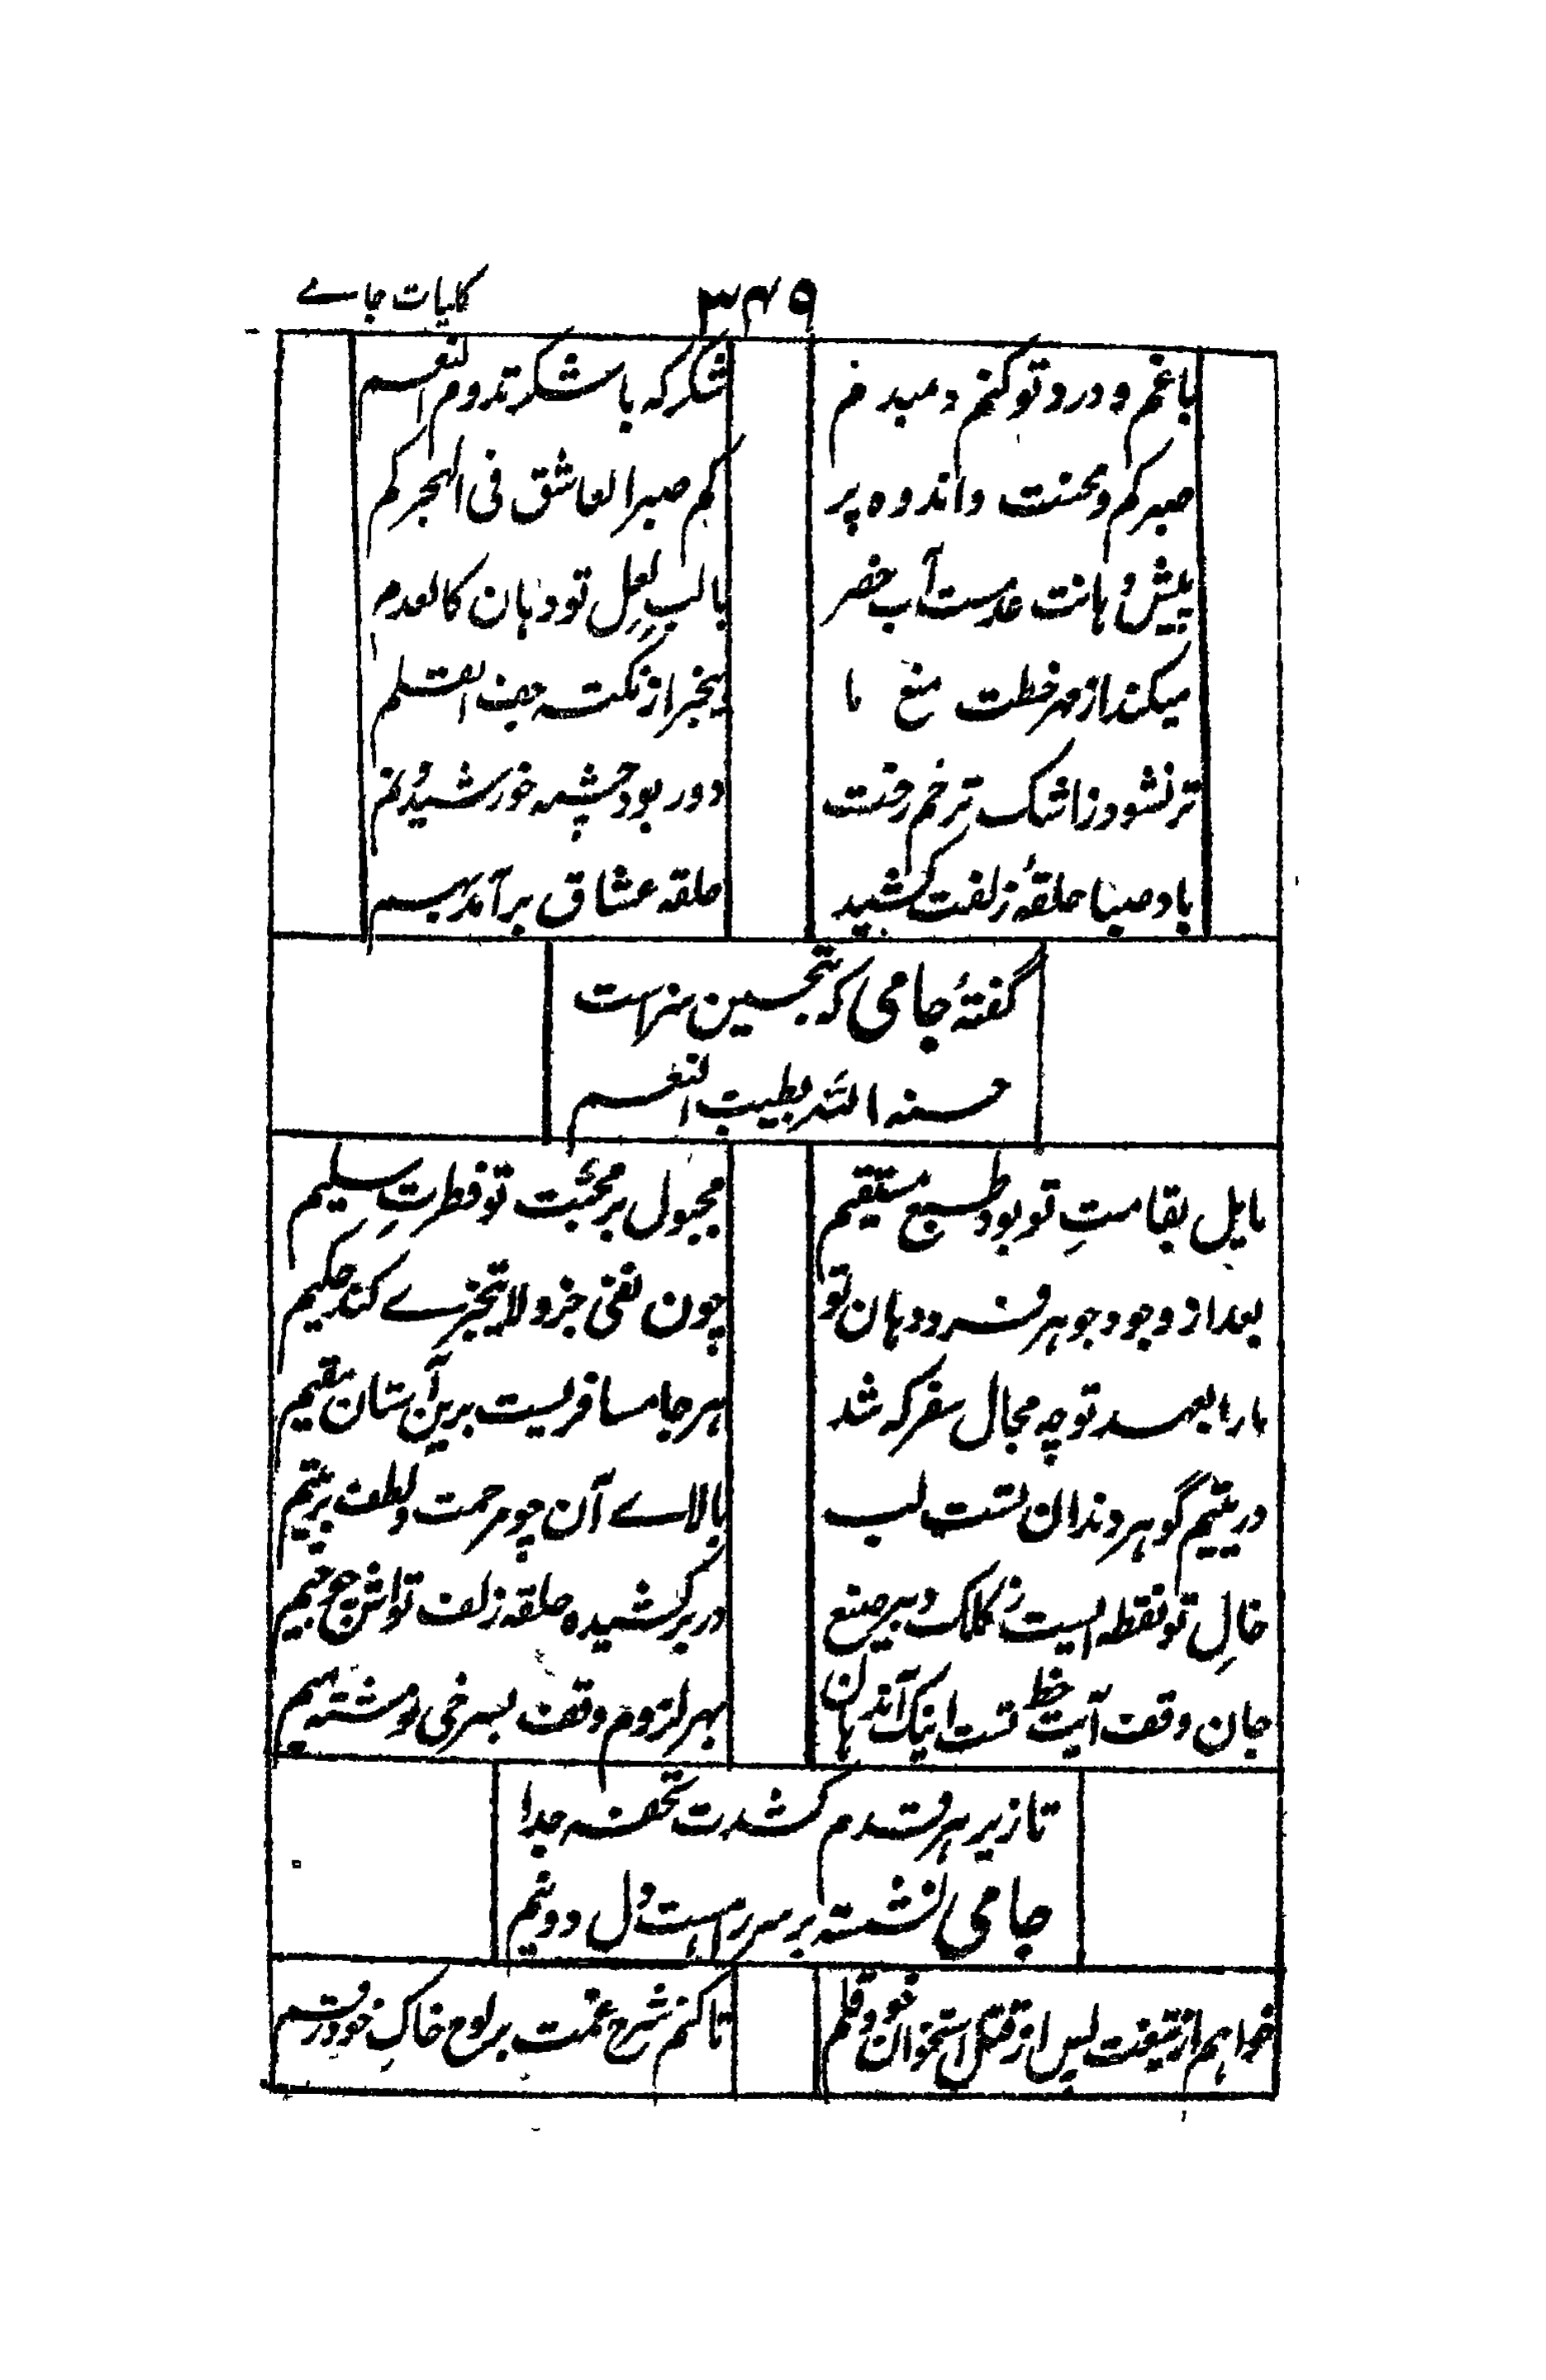 ۳۶۹
کلیات جامے
باغم و درد تو کنم دمبدم
شکر که با شکر تدوم النعم
صبر کم و محنت و اندوه پر
کم صبر العاشق فی الهجر کم
پیش دهانت عدمست آب خضر
با لب لعل تو دهان کالعدم
میکند از مهر خطت منع ما
بیخبر از نکته جف القلم
تر نشود ز اشک ترحم رخت
دور بود چشمه خورشید ز نم
باد صبا حلقهٔ زلفت کشید
حلقه عشاق برآمد بهم
گفتهٔ جامی که بتحسین سزاست
حسنه الله بطیب النغم
مایل بقامتِ تو بود طبع مستقیم
مجبول بر محبّت تو فطرتِ سلیم
بعد از وجود جوهر فرد دهان تو
چون نفی جزو لا یتجزے کند حکیم
ما را بعهد تو چه مجال سفر که شد
هر جا مسافریست برین آستان مقیم
در یتیم گوهر دندان تست لب
بالاے آن چو مرحمت و لطف بر یتیم
خالِ تو نقطه ایست ز کلک دبیر صنع
در بر کشیده حلقه زلف تواش چو جیم
جان وقف آیت خط تست اینک آن دهان
بهر لزوم وقف بسرخی نوشته میم
تا زیر هر قدم کشدت تحفه جدا
جامی نشسته بر سر راهست دل دو نیم
خواهم از تیغت پس از قتل استخوان خود قلم
تا کنم شرح غمت بر لوح خاکِ خود رقم